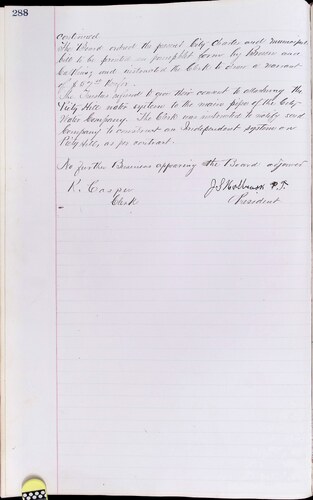 288
continued
The Board ordered the present City Charter and municipal
bill to be printed in pamphlet form by Bowen and
and instructed the Clerk to draw a warrant
of $
The Trustees refused to give their consent to attaching the
Piety Hill water system to the mains pipe of the City
Water Company. The Clerk was instructed to notify said
Company to construct an Independent system on
Piety Hill, as per contract.
No further Business appearing the Board adjourned
K. Casper
J S P.T.
Clerk
President